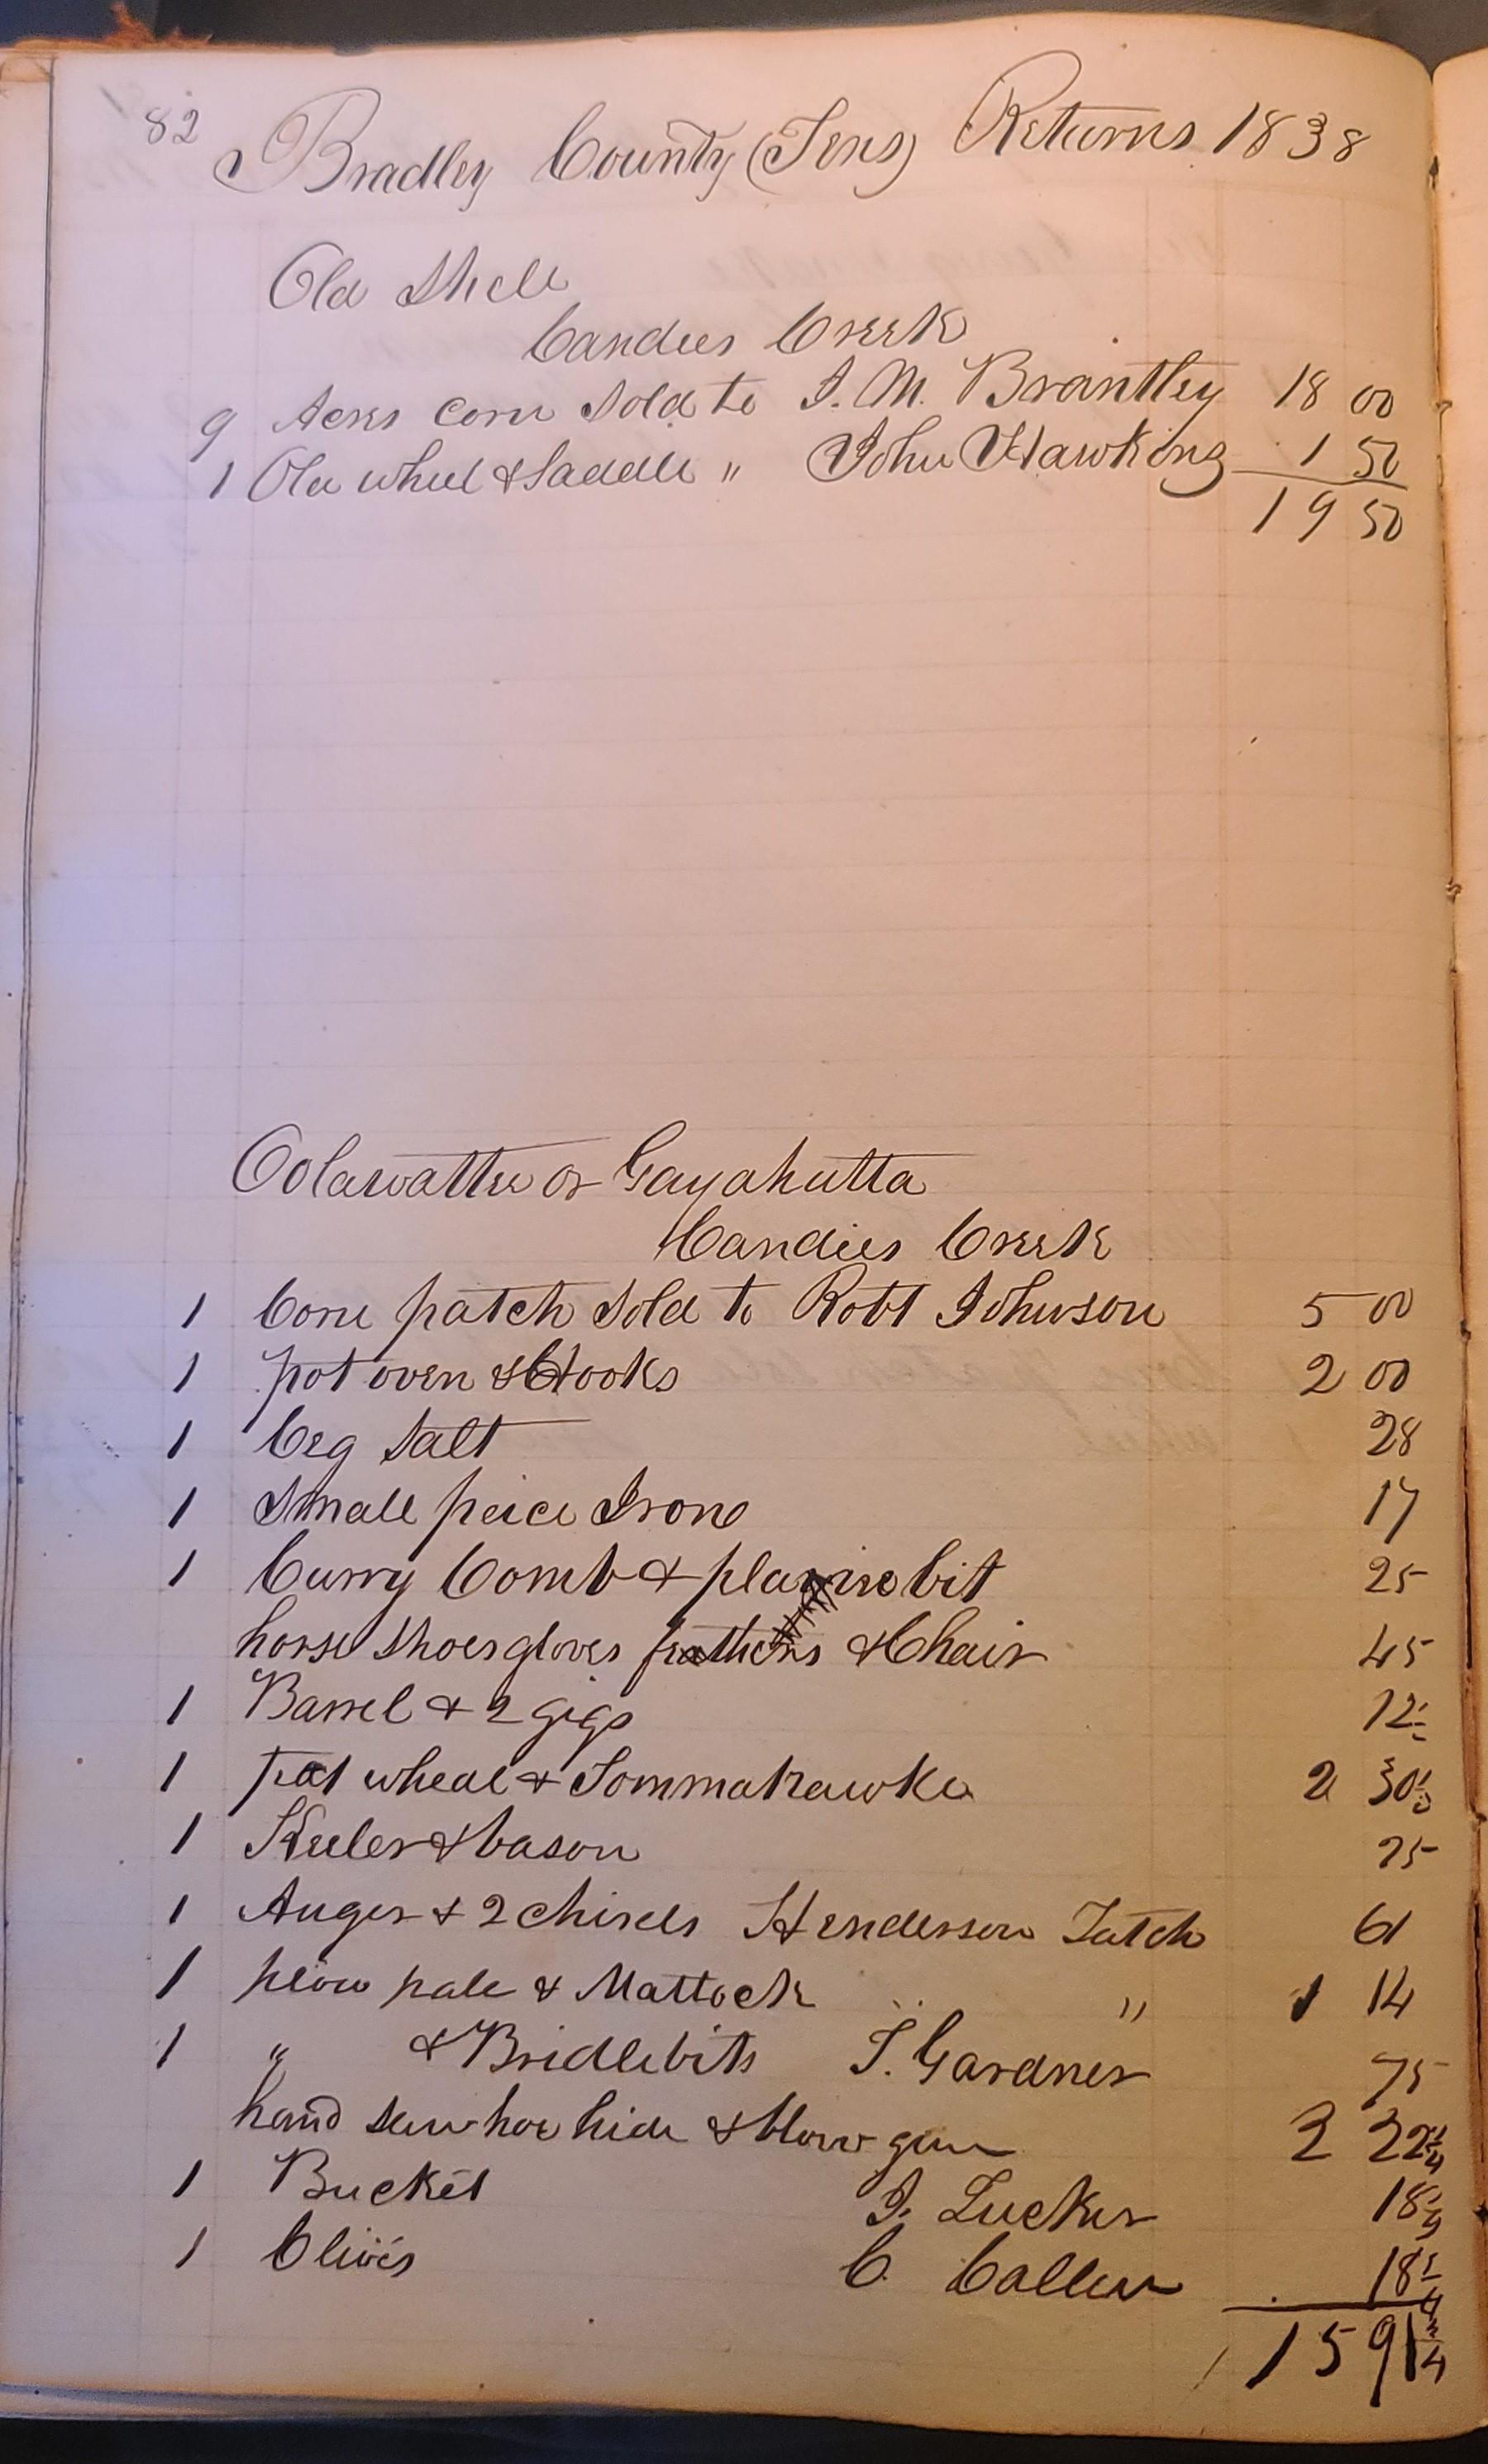 82 Bradley County (Tens) Returns 1838
Old Shell
Candies Creek
9 Acres corn Sold to J. M. Brantley 18 00
1 Old wheel & Saddle " John Hawkins 1 50
19 50
Oolawattee or Gayahutta
Candies Creek
1 Corn patch Sold to Robt Johnson 5 00
1 pot oven & Hooks 2 00
1 Ceg Salt 28
1 Small peice Iron 17
1 Curry Comb & bit 25
horse shoes gloves feathers & Chair 45
1 Barrel & 2 gigs 12½
1 wheal & Tommahawke 2 30½
1 Keeler & bason 25
1 Auger & 2 chisels Henderson Tatch 61
1 plow pale & Mattock " 1 14
1 " & Bridlebits T. Gardner 75
hand saw hoe hide & blow gun 2 22¼
1 Bucket J. Tucker 18¾
1 Clivis C. Callen 18¾
15 91¾